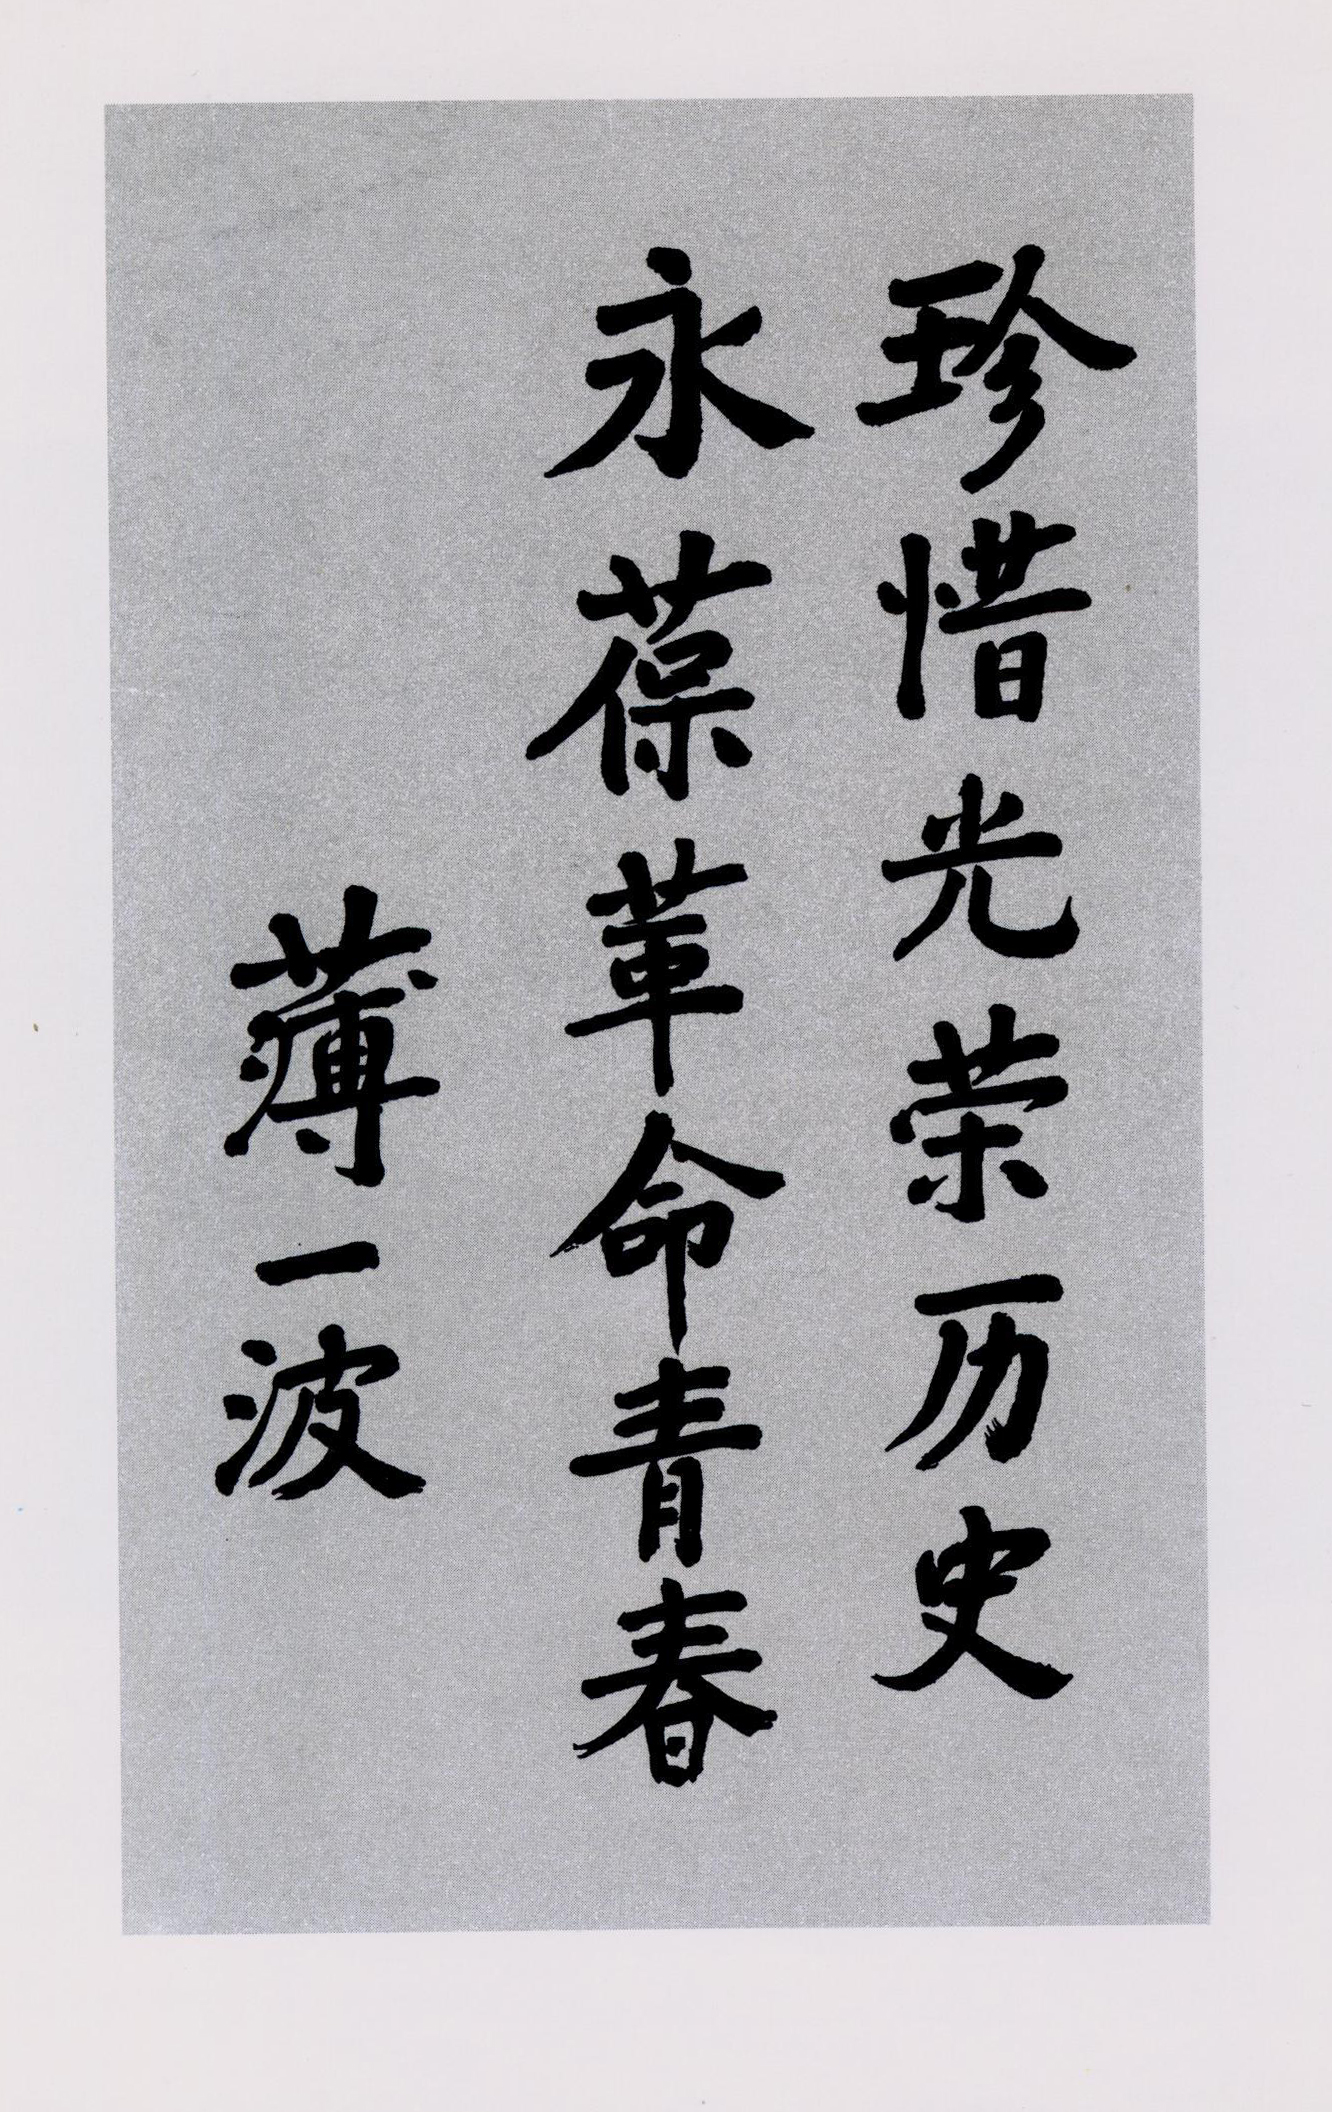 珍惜光荣历史
永葆革命青春
薄一波